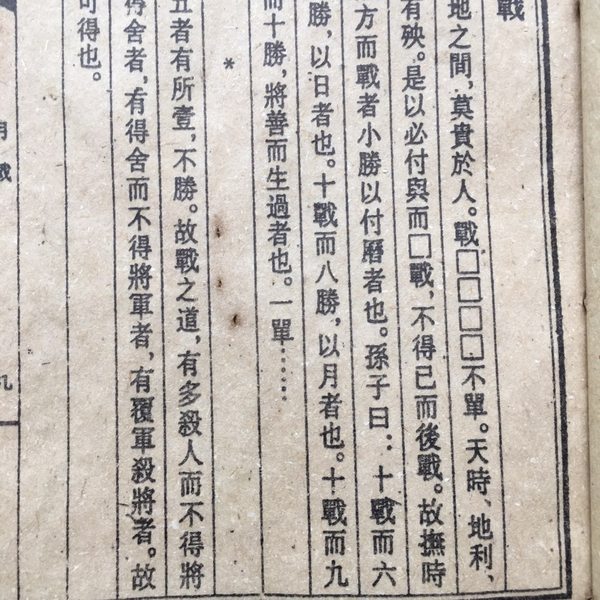 戰
地之間，莫貴於人。戰□□□□不單。天時、地利、
有殃。是以必付與而□戰，不得已而後戰。故撫時
方而戰者小勝以付磿者也。孫子曰：十戰而六
勝，以日者也。十戰而八勝，以月者也。十戰而九
而十勝，將善而生過者也。一單……
*
五者有所壹，不勝。故戰之道，有多殺人而不得將
得舍者，有得舍而不得將軍者，有覆軍殺將者。故
可得也。
月戰
九